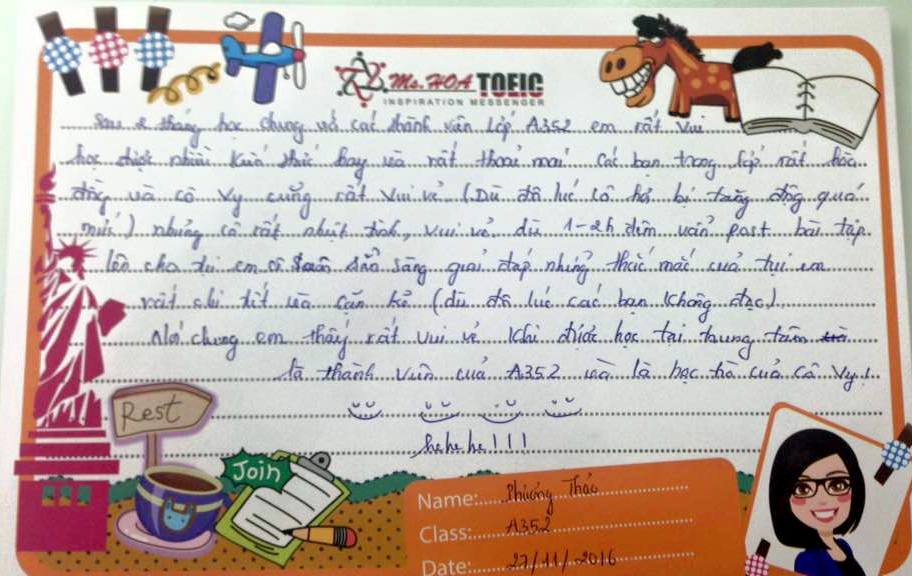 Ms. HOA TOEIC
INSPIRATION MESSENGER
Sau 2 tháng học chung với các thành viên lớp A352 em rất vui
học được nhiều kiến thức hay và rất thoải mái. Các bạn trong lớp rất hòa
đồng và cô Vy cũng rất vui vẻ (Dù đôi lúc cô hơi bị tăng động quá
mức) nhưng cô rất nhiệt tình, vui vẻ dù 1-2h đêm vẫn post bài tập
lên cho tụi em sẵn sàng giải đáp những thắc mắc của tụi em
rất chi tiết và cặn kẽ (dù đôi lúc các bạn không đọc)
Nói chung em thấy rất vui vẻ khi được học tại trung tâm
là thành viên của A352 và là học trò của cô Vy!
hehehe!!!
Rest
Join
Name: Phương Thảo
Class: A352
Date: 27/11/2016